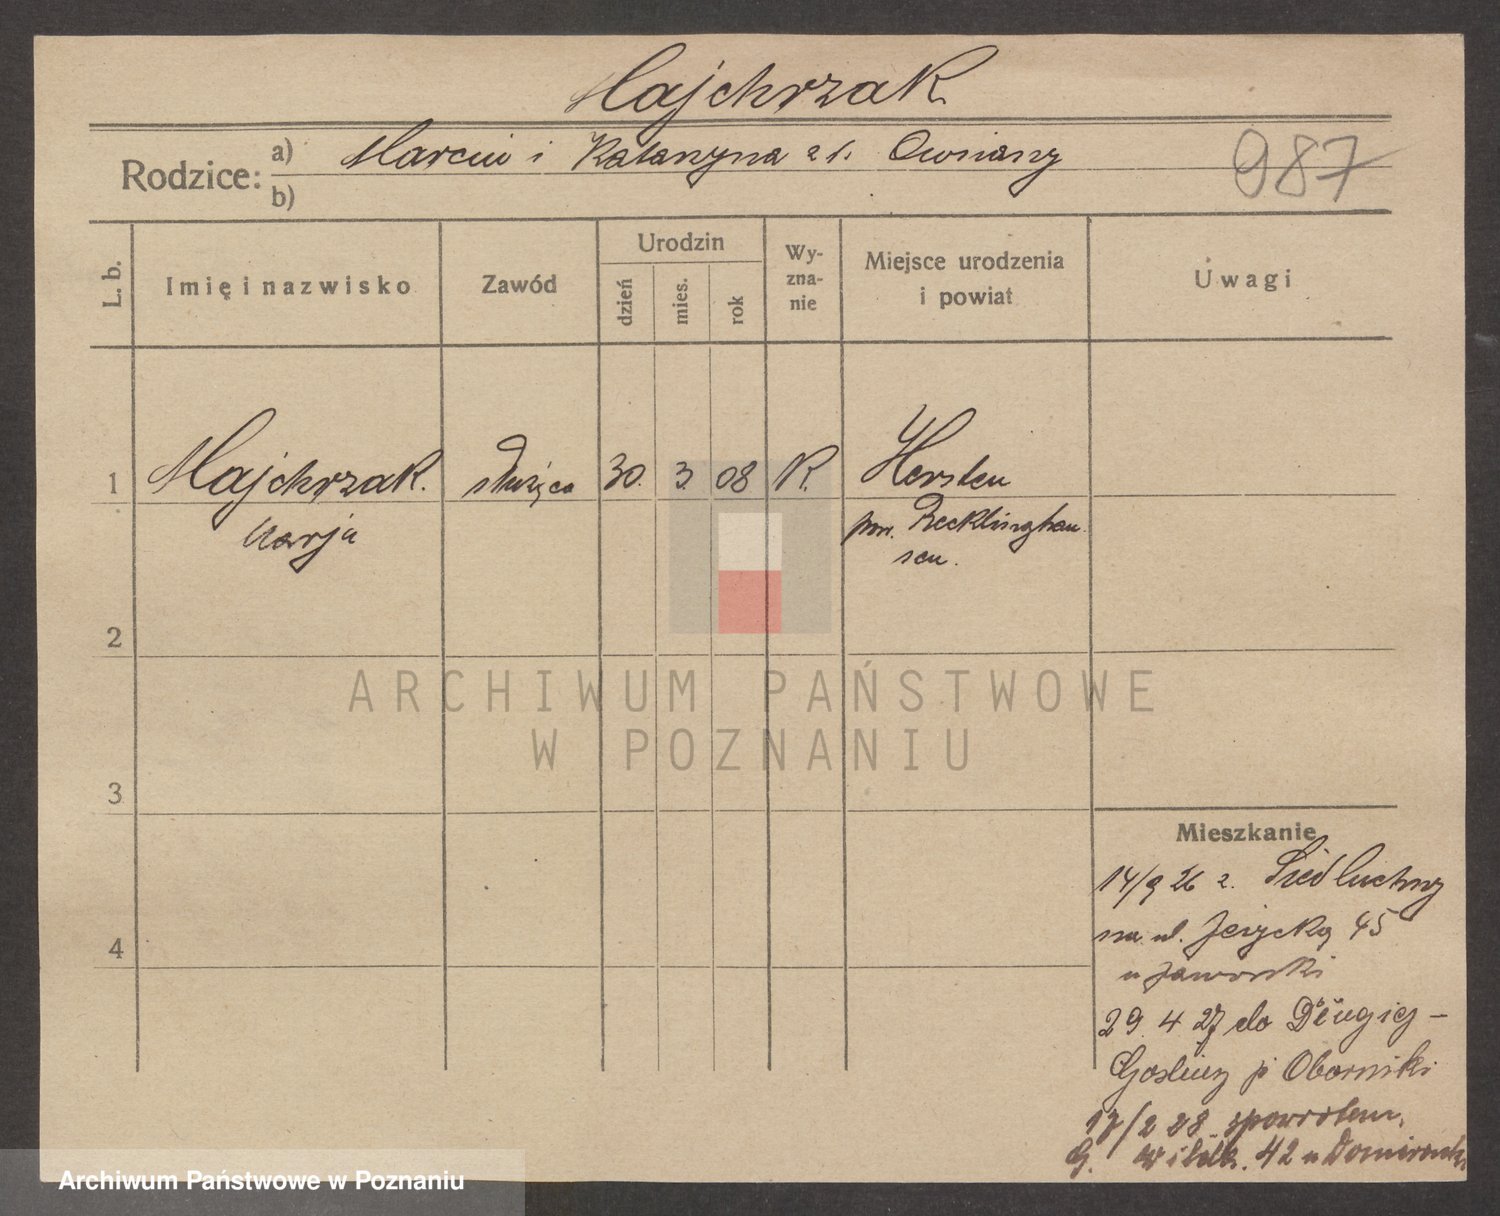 Majchrzak
Rodzice:
a) Marcin i Katarzyna z d. Owsiany
b)
987
L. b.
Imię i nazwisko
Zawód
Urodzin
dzień
mies.
rok
Wy-
zna-
nie
Miejsce urodzenia
i powiat
Uwagi
1 Majchrzak służąca 30. 3. 08 K. Hersten
Marja pow. Recklinghau
sen.
2
3
4
ARCHIWUM PAŃSTWOWE
W POZNANIU
Mieszkanie
14/9 26 z Siedluchny
na ul. Jeżycką 45
u Jaworski
29. 4 27 do Długiej-
Gosliny p Oborniki
17/2 28 spowrotem.
G. 42 u
Archiwum Państwowe w Poznaniu